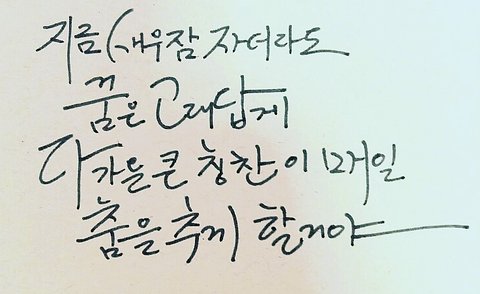 지금 새우잠 자더라도
꿈은 고래답게
다가올 큰 칭찬이 매일
춤을 추게 할거야